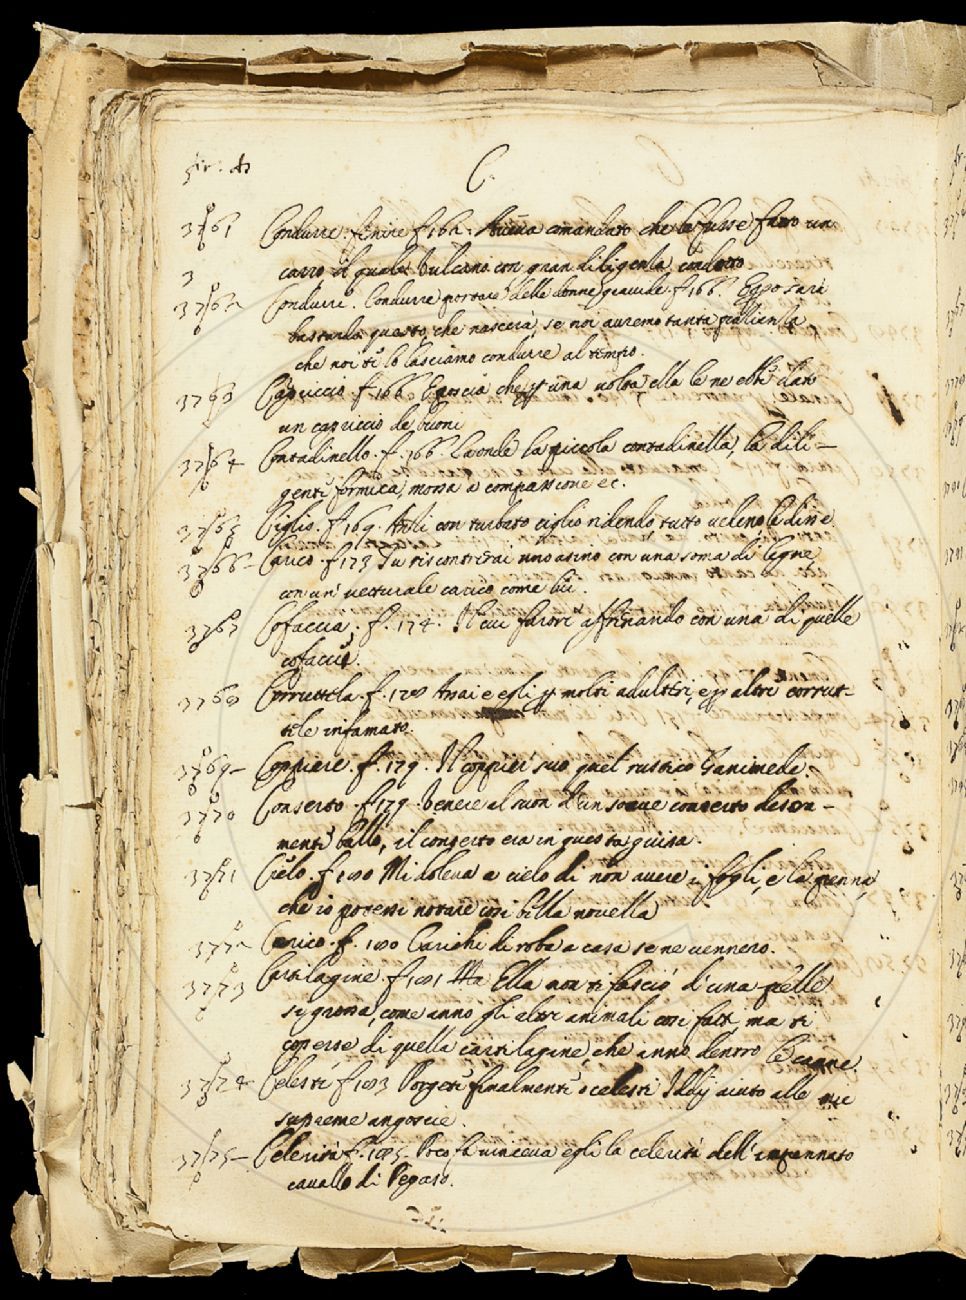 C.
3761 Condurre. finire f. 162. Aveva comandato che le fusse fatto un
carro il quale Vulcano con gran diligenza condotto
3762 Condurre. Condurre portare delle donne gravide f. 166. Egpo sarà
bastardo questo, che nascerà, se noi auremo tanta pazienza
che noi ti lo lasciamo condurre al tempo.
3763 Capriccio f. 166. E poscia che una volta ella le ne ebbe dato
un capriccio de buoni
3764 Contadinello. f. 166. Laonde la piccola contadinella, la dili-
gente formica, mossa a compassione ec.
3765 Ciglio. f. 169. Anzi con turbato ciglio ridendo, tutto veleno le disse
3766 Carico. f. 173 Tu riscontrerai uno asino con una soma di legne,
con un vetturale carico come lui.
3767 Cofaccia. f. 174. Il cui furore affrenando con una di quelle
cofaccie.
3768 Corruttela. f. 178 Anzi e egli per molti adulteri, e per altre corrut-
tele infamato.
3769 Coppiere. f. 179. Il coppier suo quel rustico Ganimede.
3770 Conserto. f. 179. Venere al suon d'un soave conserto destra-
mente ballò, il conserto era in questa guisa.
3771 Cielo. f. 180 Mi doleva a cielo di non avere i fogli, e la penna,
che io potessi notare così bella novella
3772 Carico. f. 180 Carichi di roba a casa se ne vennero.
3773 Cartilagine. f. 181 Ella non ti fasciò d'una pelle
sì grossa, come anno gli altri animali così fatti, ma ti
coperse di quella cartilagine che anno dentro le canne.
3774 Celeste f. 183 Porgete finalmente o celesti Iddij aiuto alle mie
supreme angoscie.
3775 Celerità f. 185. Poco fa vinceva egli la celerità dell'impennato
cavallo di Pegaso.